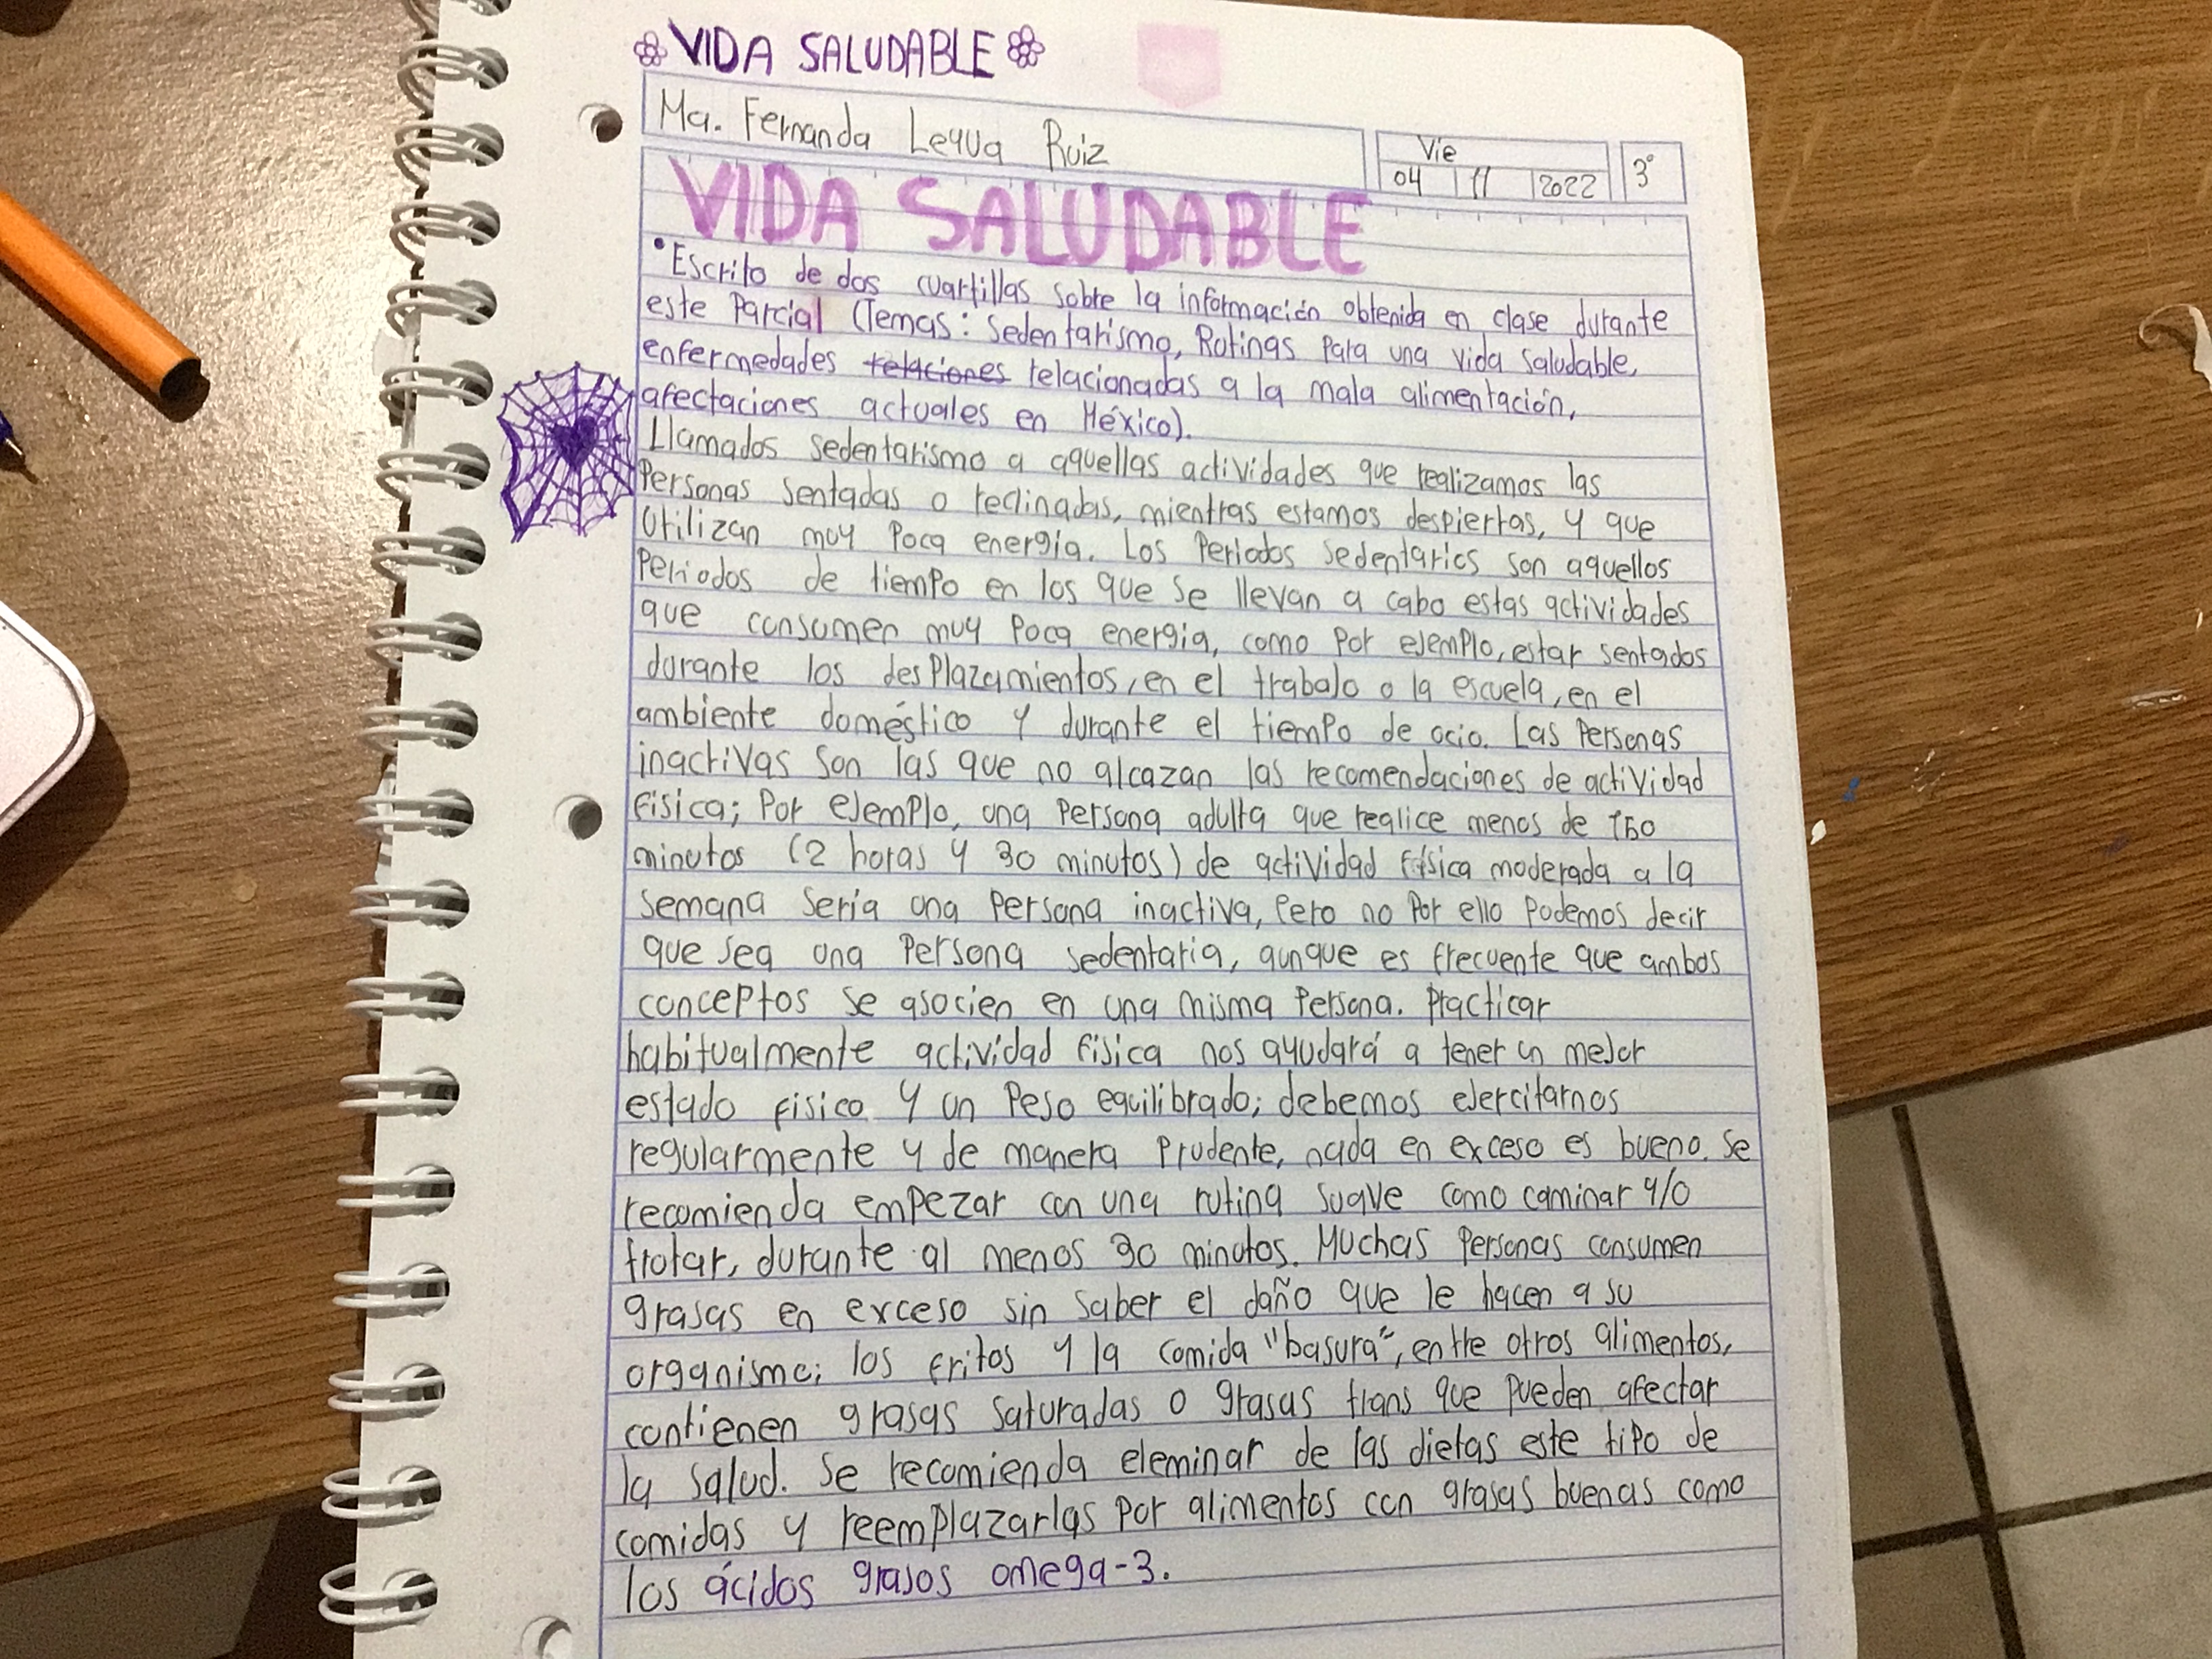 VIDA SALUDABLE
Ma. Fernanda Leyva Ruiz
Vie
04 11 2022
3°
VIDA SALUDABLE
•Escrito de dos cuartillas sobre la información obtenida en clase durante
este Parcial (Temas: Sedentarismo, Rotinas Para una vida saludable,
enfermedades relaciones relacionadas a la mala alimentación,
afectaciones actuales en México).
Llamados sedentarismo a aquellas actividades que realizamos las
Personas sentadas o reclinadas, mientras estamos despiertas, y que
Utilizan muy Poca energía. Los Periodos sedentarios son aquellos
Periodos de tiempo en los que se llevan a cabo estas actividades
que consumen muy Poca energia, como Por ejemplo, estar sentados
durante los desplazamientos, en el trabajo o la escuela, en el
ambiente doméstico y durante el tiempo de ocio. Las Personas
inactivas son las que no alcazan las recomendaciones de actividad
física; Por ejemplo, una Persona adulta que realice menos de 150
minutos (2 horas y 30 minutos) de actividad física moderada a la
semana seria una Persona inactiva, Pero no Por ello Podemos decir
que sea una Persona sedentaria, aunque es frecuente que ambos
conceptos se asocien en una misma Persona. Practicar
habitualmente actividad física nos ayudará a tener un mejor
estado físico y un Peso equilibrado; debemos ejercitarnos
regularmente y de manera Prudente, nada en exceso es bueno. Se
recomienda empezar con una rutina suave como caminar y/o
trotar, durante al menos 30 minutos. Muchas Personas consumen
grasas en exceso sin saber el daño que le hacen a su
organismo; los fritos y la comida "basura", entre otros alimentos,
contienen grasas saturadas o grasas trans que pueden afectar
la salud. Se recomienda eleminar de las dietas este tipo de
comidas y reemplazarlas por alimentos con grasas buenas como
los ácidos grasos omega-3.